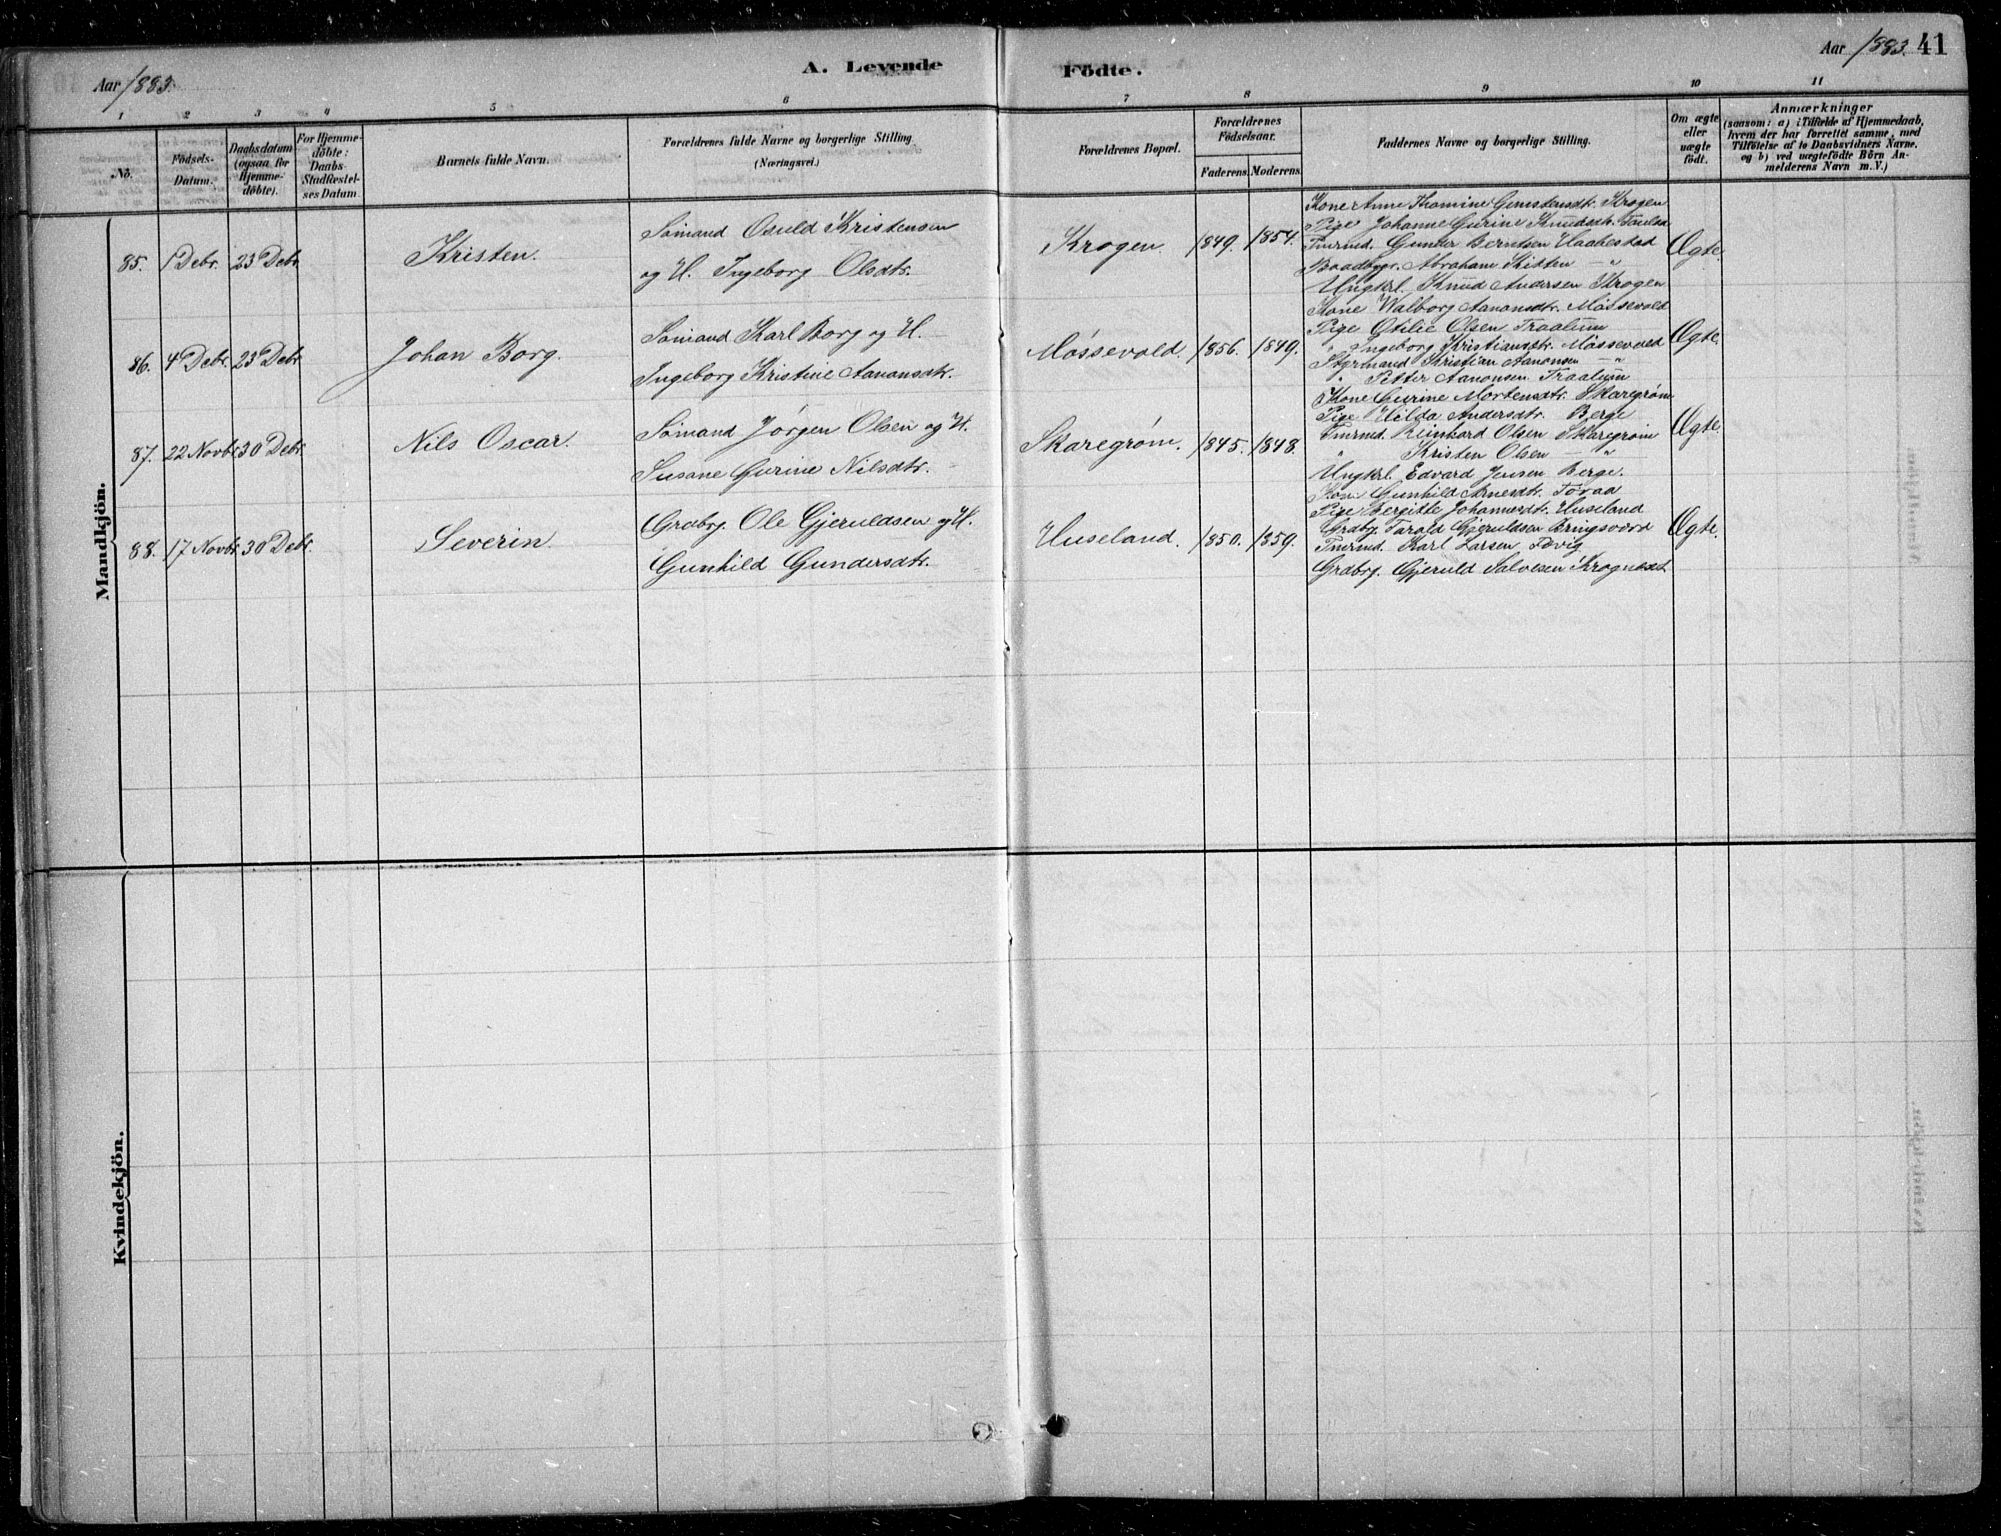 Aar 1883.
A. Levende Fødte.
Aar 1883. 41
1 2 3 4 5 6 7 8 9 10 11
No.
Födsels-Datum.
Daabsdatum (ogsaa for Hjemme-döbte).
For Hjemme-döbte: Daabs-Stadfæstel-ses Datum
Barnets fulde Navn.
Forældrenes fulde Navne og borgerlige Stilling. (Næringsvei.)
Forældrenes Bopæl.
Forældrenes Födselsaar.
Faderens. Moderens.
Faddernes Navne og borgerlige Stilling.
Om ægte eller uægte födt.
Anmærkninger
(saasom: a) i Tilfælde af Hjemmedaab,
hvem der har forrettet samme, med
Tilföielse af to Daabsvidners Navne.
og b) ved uægtefödte Börn An-
melderens Navn m.V.)
Mandkjön.
85. 1 Debr. 23 Debr. Kristen. Sömand Osuld Kristensen
og H. Ingeborg Olsdtr. Krogen. 1849. 1854.
Kone Anne Tomine Krogen
Pige Johanne Gurine Knudsdtr.
Tmrmd. Gunder Berntsen Haabestad
Baadbygr. Abraham — „
Ungkrl. Knud Andersen Krogen
Ægte.
86. 4 Debr. 23 Debr. Johan Borg. Sömand Karl Borg og H.
Ingeborg Kristine Aanonsdtr. Møssevold. 1856. 1849.
Kone Walborg Aanonsdtr. Møssevold
Pige Otilie Olsen Traalum
„ Ingeborg Kristiansdtr. Møssevold
Styrmand Kristian Aanonsen — „
„ Petter Aanonsen Traalum
Ægte.
87. 22 Novbr. 30 Debr. Nils Oscar. Sömand Jørgen Olsen og H.
Susane Gurine Nilsdtr. Skaregrøm. 1845. 1848.
Kone Gurine Mortensdtr. Skaregrøm
Pige Hilda Andersdtr. Berge
Tmrmd. Reinhard Olsen Skaregrøm
„ Kristen Olsen — „
Ungkrl. Edvard Jensen Berge.
Ægte.
88. 17 Novbr. 30 Debr. Severin. Grdbrg. Ole Gjeruldsen og H.
Gunhild Gundersdtr. Huseland. 1850. 1859.
Kone Gunhild Arnesdtr.
Pige Bergitte Johannesdtr. Huseland
Grdbrg. Tarald Gjeruldsen Bringsvord
Tmrmd. Karl Larsen
Grdbrg. Gjeruld Salvesen
Ægte.
Kvindekjön.